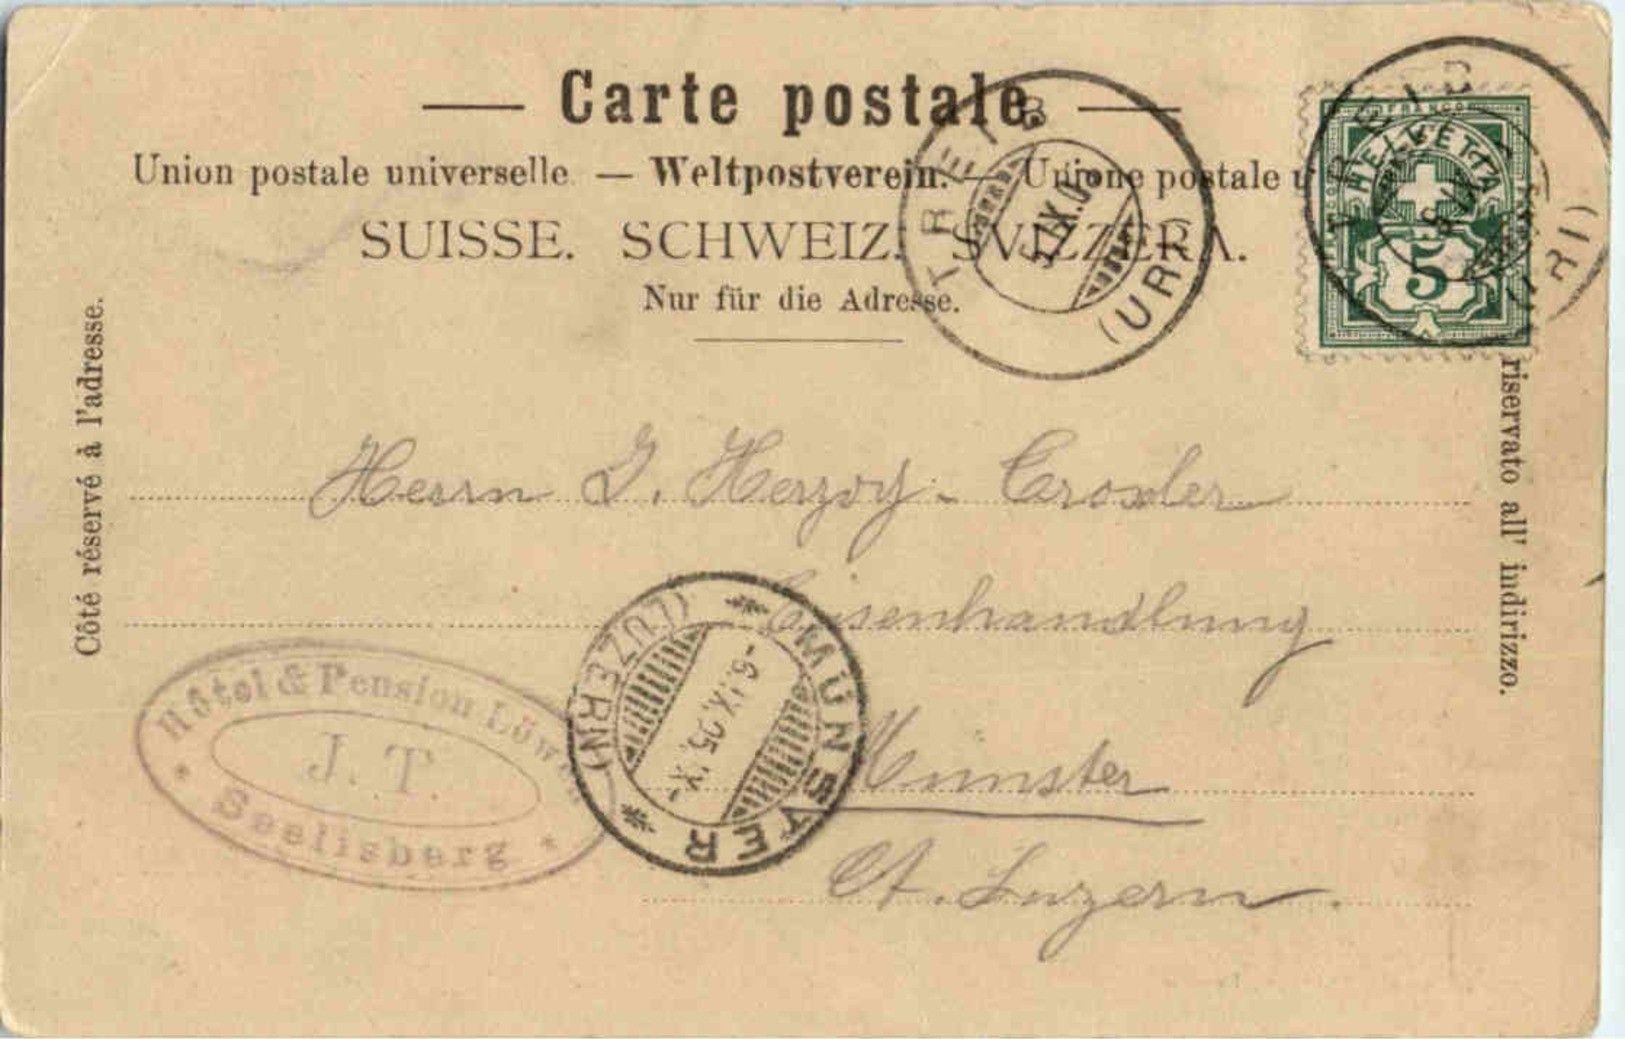 Carte postale.
Union postale universelle. — Weltpostverein. — Unione postale
SUISSE. SCHWEIZ. SVIZZERA.
Nur für die Adresse.
Côté réservé à l'adresse.
riservato all' indirizzo.
TREIB
IX.0
(URI)
FRANCO
HELVETIA
5
TREIB
IX
(URI)
Herrn J. Herzog-Troxler
Eisenhandlung
Münster
Ct. Luzern.
Hôtel & Pension Löwen
J. T.
* Seelisberg *
MÜNSTER
-6.IX.05.IX-
(LUZERN)